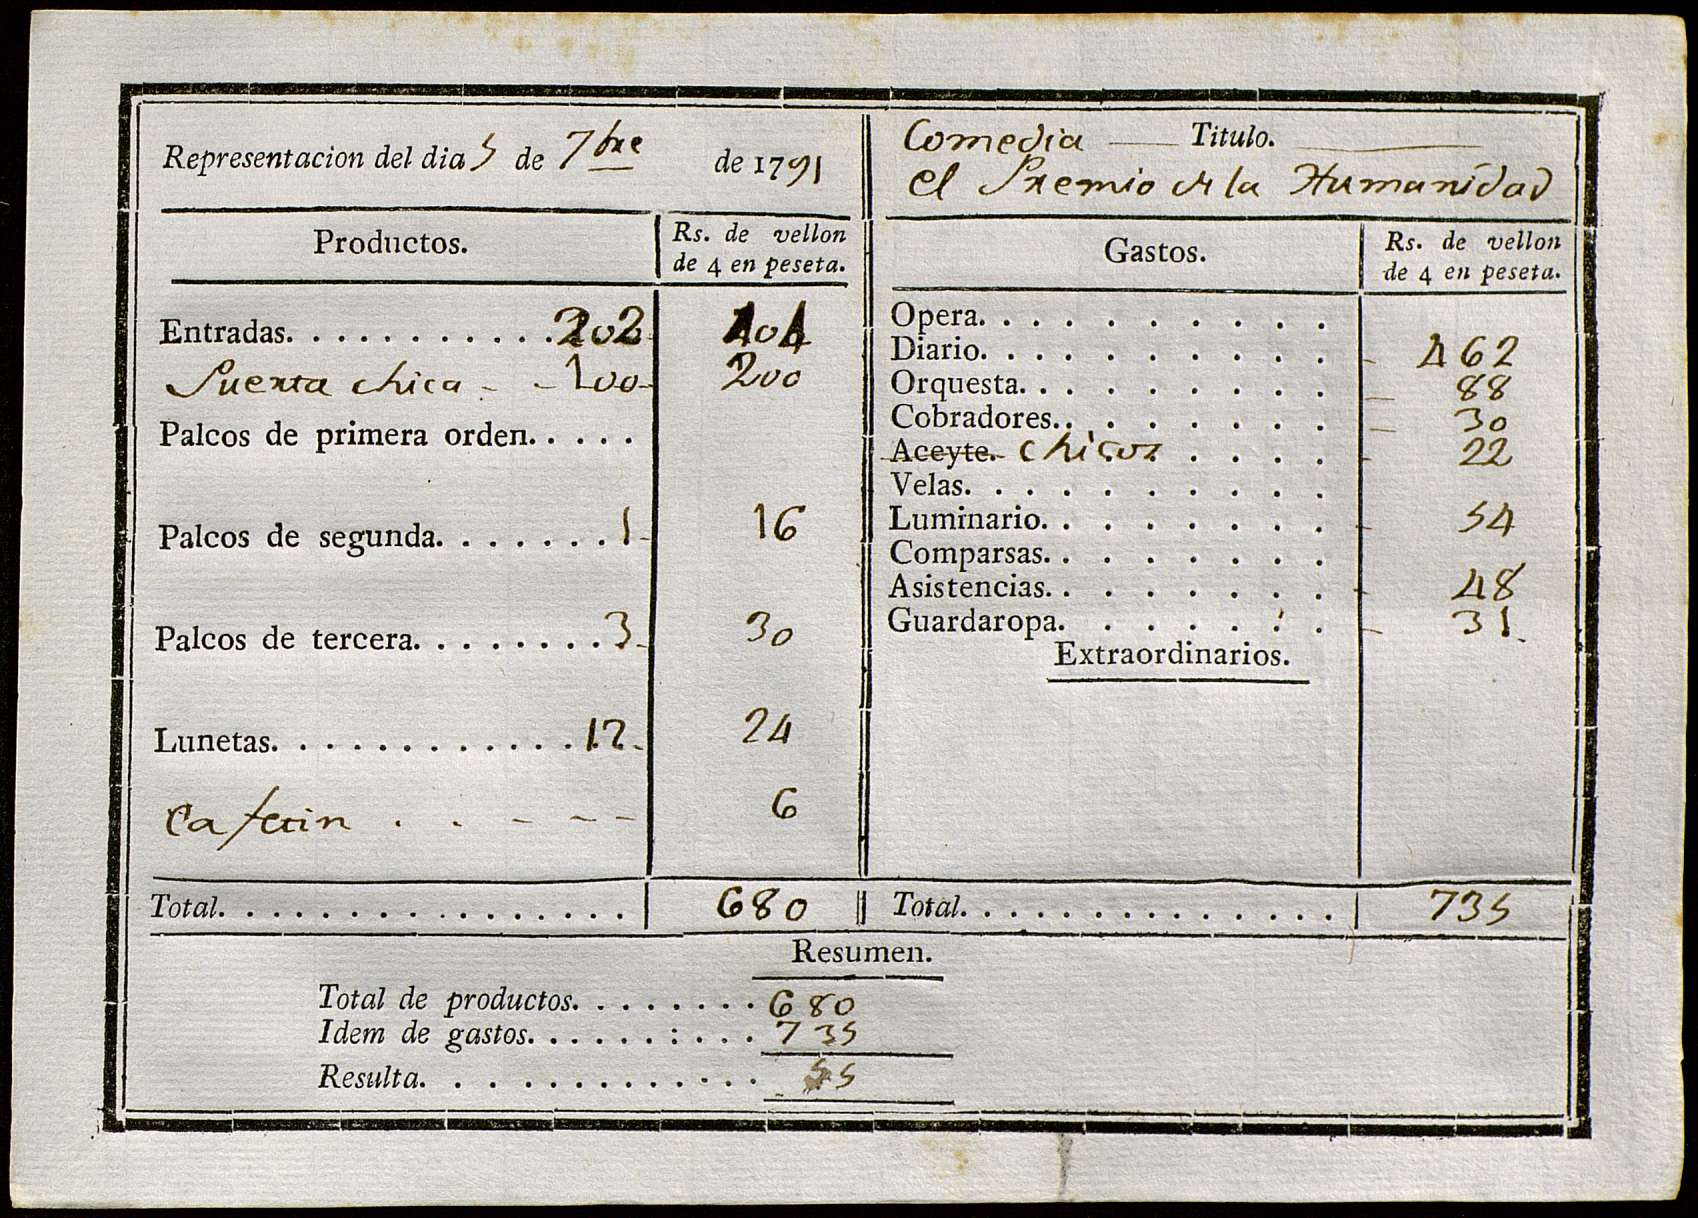 Representacion del dia 5 de 7bre de 1791
Productos.
Rs. de vellon
de 4 en peseta.
Entradas. . . . . . . . . . . 202 404
Puerta chica - - 100 200
Palcos de primera orden. . . . .
Palcos de segunda. . . . . . . 1 16
Palcos de tercera. . . . . . . . 3 30
Lunetas. . . . . . . . . . . . 12 24
Cafetin . . - - - 6
Total. . . . . . . . . . . . . . . . 680
Comedia Titulo.
el Premio de la Humanidad
Gastos.
Rs. de vellon
de 4 en peseta.
Opera. . . . . . . . .
Diario. . . . . . . . . 462
Orquesta. . . . . . . . 88
Cobradores. . . . . . . 30
Aceyte. chicos . . . . 22
Velas. . . . . . . . . .
Luminario. . . . . . . . 54
Comparsas. . . . . . . .
Asistencias. . . . . . . . 48
Guardaropa. . . . . . . 31
Extraordinarios.
Total. . . . . . . . . . . . . . . 735
Resumen.
Total de productos. . . . . . . . 680
Idem de gastos. . . . . . : . . . 735
Resulta. . . . . . . . . . . . . 55